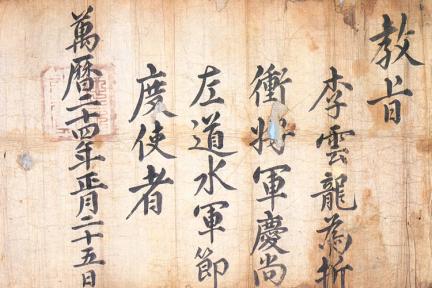 教旨
李雲龍為折
衝將軍慶尚
左道水軍節
度使者
萬曆二十四年正月二十五日